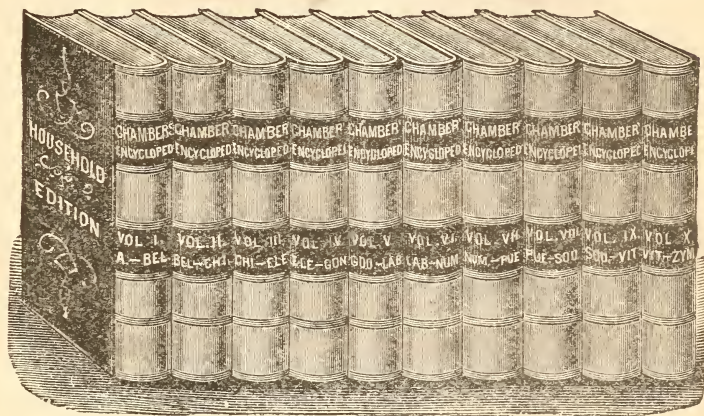 HOUSEHOLD
EDITION
CHAMBERS
ENCYCLOPED
VOL. I.
A.–BEL
CHAMBER
ENCYCLOPED
VOL. II.
BEL–CHI.
CHAMBER
ENCYCLOPED
VOL. III.
CHI–ELE
CHAMBER'
ENCYCLOPE
VOL. IV.
ELE–GON
CHAMBER
ENCYCLOPED
VOL V.
GOO–LAB
CHAMBER'
ENCYCLOPED
VOL. VI.
LAB–NUM
CHAMBER'
ENCYCLOPED
VOL. VII
NUM.–PUE
CHAMBER'
ENCYCLOPED
VOL. VIII
PUE–SOD
CHAMBER'
ENCYCLOPE
VOL. IX.
SOD.–VIT
CHAMBE
ENCYCLOPE
VOL X
VIT.–ZYM